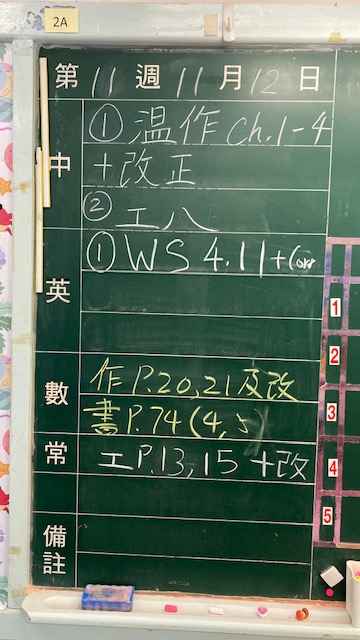 2A
第 11 週 11 月 12 日
中 ① 温作 ch.1-4
+改正
② 工八
英 ① WS 4.11+Corr
1
2
數 作 P.20,21 及改
書 P.74 (4,5)
3
常 工 P.13,15 +改
4
5
備註